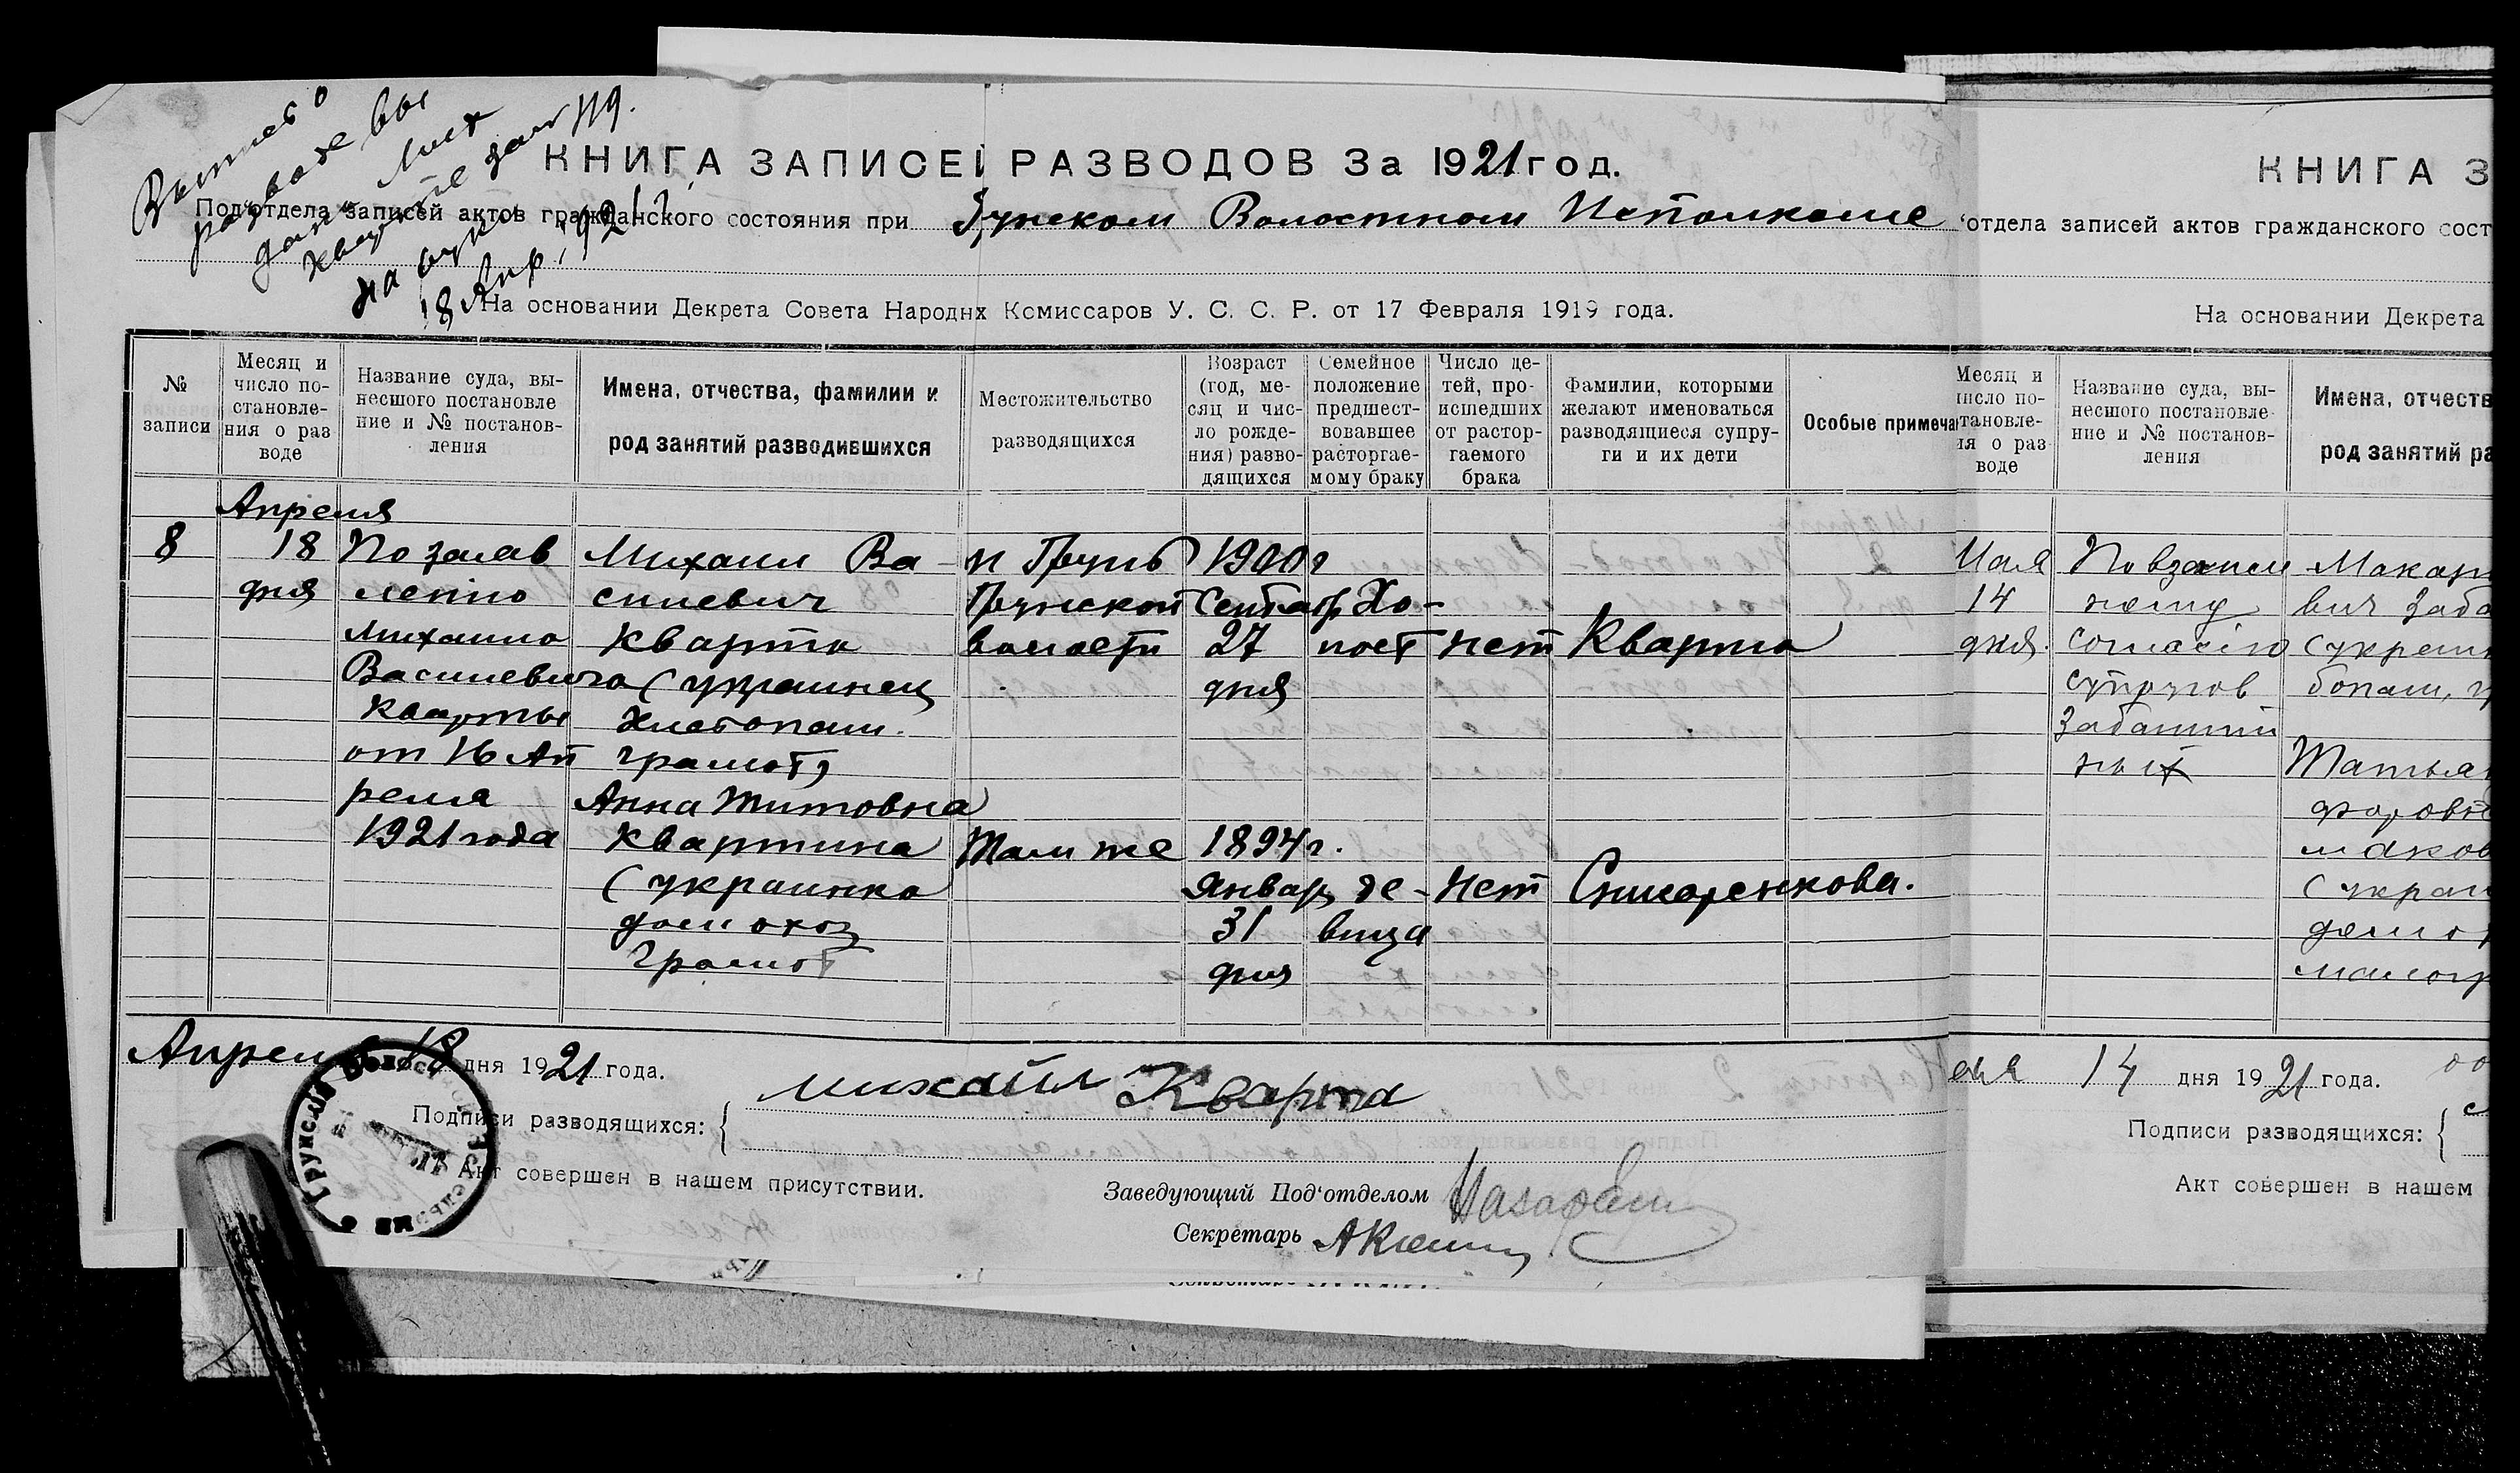 Выпись о
разводе вы
дана Мих
Кварте за № 119.
на руки
18 Апр. 1921 г.
КНИГА ЗАПИСЕЙ РАЗВОДОВ За 1921 год.
Подотдела записей актов гражданского состояния при Грунском Волостном Исполкоме
На основании Декрета Совета Народнх Комиссаров У. С. С. Р. от 17 Февраля 1919 года.
№ записи
Месяц и число по-
становле-
ния о раз
воде
Название суда, вы-
несшого постановле
ние и № постанов-
ления
Имена, отчества, фамилии и
род занятий разводившихся
Местожительство
разводящихся
Возраст
(год, ме-
сяц и чис-
ло рожде-
ния) разво-
дящихся
Семейное
положение
предшест-
вовавшее
расторгае-
мому браку
Число де-
тей, про-
исшедших
от растор-
гаемого
брака
Фамилии, которыми
желают именоваться
разводящиеся супру-
ги и их дети
Особые примеча
8
Апреля
18
дня
По заяв
лению
Михаила
Васильевича
Кварты
от 16 Ап
реля
1921 года
Михаил Ва-
сильевич
Кварта
(украинец
хлебопаш.
грамот)
Анна Титовна
Квартина
(украинка
домохоз
грамот
м Грунь
Грунской
волости
Там же
1900 г
Сентябр
27
дня
1894 г.
Январ
31
дня
Хо-
лост
де-
вица
нет
нет
Кварта
Снисаренкова.
Апреля 18 дня 1921 года.
Подписи разводящихся:
Михайл Кварта
Акт совершен в нашем присутствии.
Заведующий Под'отделом
Секретарь
КНИГА З
отдела записей актов гражданского сост
На основании Декрета
Месяц и
число по-
тановле-
ия о раз
воде
Название суда, вы-
несшого постановле
ние и № постанов-
ления
Имена, отчеств
род занятий ра
Мая
14
дня
По взаим
ному
согласию
супругов
Макар
(украин
Татья
(украи
14 дня 1921 года.
Подписи разводящихся:
Акт совершен в нашем